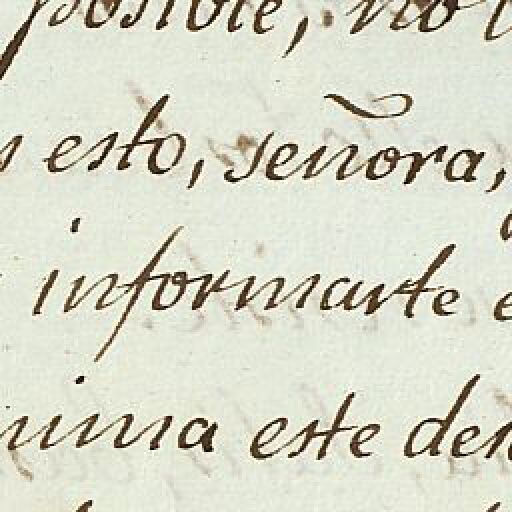 posible, no
esto, señora,
informarte e
nima este des